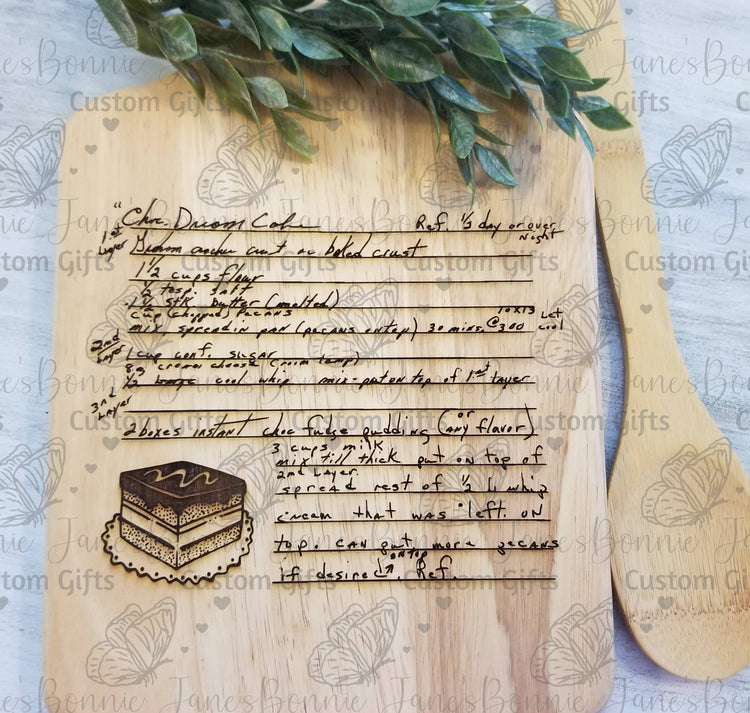 " Choc. Dream Cake Ref. 1/2 day or over Night
1st Layer Graham cracker crust or baked crust
1 1/2 cups flour
1/2 tesp. Salt
1 1/2 STK. butter (melted)
cup (chopped) Pecans 10x13 Let
mix, spread in pan (pecans on top) 30 mins. @300 cool
2nd Layer 1 cup conf. sugar
8g cream cheese (room temp)
1/2 Large cool whip mix - put on top of 1st layer
3rd LAYER
2 boxes instant choc fudge pudding (or any flavor)
3 cups milk
mix till thick put on top of
2nd Layer.
spread rest of 1/2 whip
cream that was left. ON
top. CAN put more pecans
ON top
if desired ↗. Ref.
Jane'sBonnie
Custom Gifts